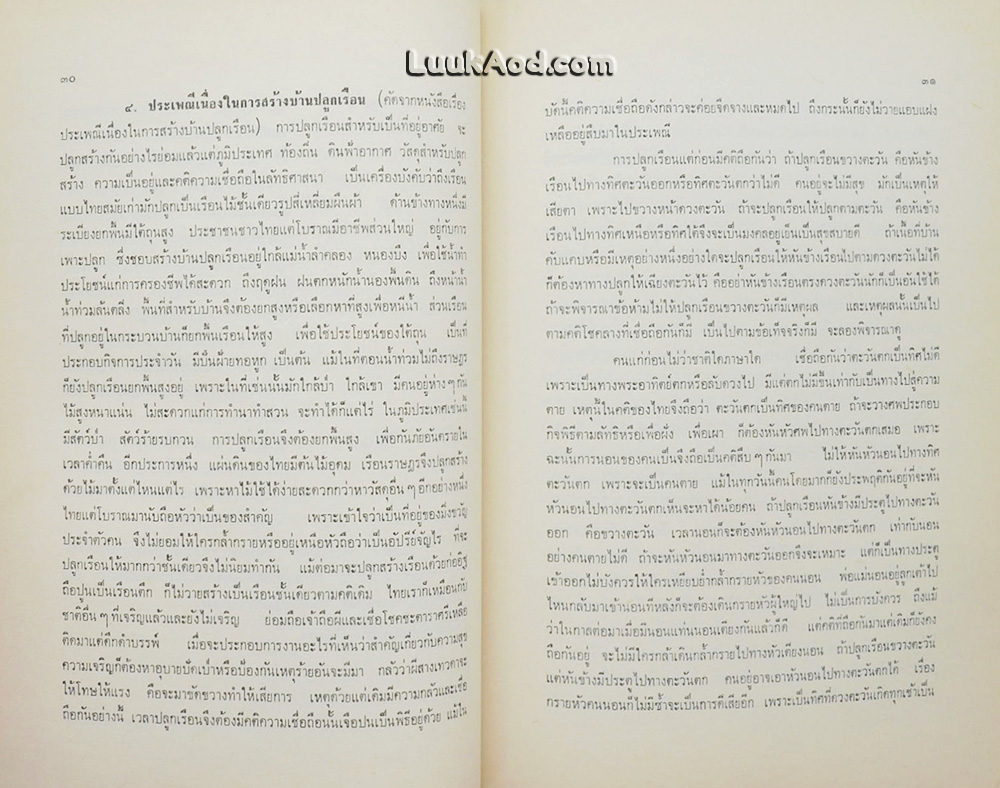 LuukAod.com
๓๐
๔. ประเพณีเนื่องในการสร้างบ้านปลูกเรือน (คัดจากหนังสือเรื่อง
ประเพณีเนื่องในการสร้างบ้านปลูกเรือน) การปลูกเรือนสำหรับเป็นที่อยู่อาศัย จะ
ปลูกสร้างกันอย่างไรย่อมแล้วแต่ภูมิประเทศ ท้องถิ่น ดินฟ้าอากาศ วัสดุสำหรับปลูก
สร้าง ความเป็นอยู่และคติความเชื่อถือในลัทธิศาสนา เป็นเครื่องบังคับว่าถึงเรือน
แบบไทยสมัยเก่ามักปลูกเป็นเรือนไม้ชั้นเดียวรูปสี่เหลี่ยมผืนผ้า ด้านข้างทางหนึ่งมี
ระเบียงยกพื้นมีใต้ถุนสูง ประชาชนชาวไทยแต่โบราณมีอาชีพส่วนใหญ่ อยู่กับการ
เพาะปลูก ซึ่งชอบสร้างบ้านปลูกเรือนอยู่ใกล้แม่น้ำลำคลอง หนองบึง เพื่อใช้น้ำทำ
ประโยชน์แก่การครองชีพได้สะดวก ถึงฤดูฝน ฝนตกหนักน้ำนองพื้นดิน ถึงหน้าน้ำ
น้ำท่วมล้นตลิ่ง พื้นที่สำหรับบ้านจึงต้องยกสูงหรือเลือกหาที่สูงเพื่อหนีน้ำ ส่วนเรือน
ที่ปลูกอยู่ในกระบวนบ้านก็ยกพื้นเรือนให้สูง เพื่อใช้ประโยชน์ของใต้ถุน เป็นที่
ประกอบกิจการประจำวัน มีปั่นฝ้ายทอหูก เป็นต้น แม้ในที่ดอนน้ำท่วมไม่ถึงราษฎร
ก็ยังปลูกเรือนยกพื้นสูงอยู่ เพราะในที่เช่นนั้นมักใกล้ป่า ใกล้เขา มีคนอยู่ห่าง ๆ กัน
ไม้สูงหนาแน่น ไม่สะดวกแก่การทำนาทำสวน จะทำได้ก็แต่ไร่ ในภูมิประเทศเช่นนี้
มีสัตว์ป่า สัตว์ร้ายรบกวน การปลูกเรือนจึงต้องยกพื้นสูง เพื่อกันภัยอันตรายใน
เวลาค่ำคืน อีกประการหนึ่ง แผ่นดินของไทยมีต้นไม้อุดม เรือนราษฎรจึงปลูกสร้าง
ด้วยไม้มาตั้งแต่ไหนแต่ไร เพราะหาไม้ใช้ได้ง่ายสะดวกกว่าหาวัสดุอื่น ๆ อีกอย่างหนึ่ง
ไทยแต่โบราณมานับถือหัวว่าเป็นของสำคัญ เพราะเข้าใจว่าเป็นที่อยู่ของมิ่งขวัญ
ประจำตัวคน จึงไม่ยอมให้ใครกล้ำกรายหรืออยู่เหนือหัวถือว่าเป็นอัปรีย์จัญไร ที่จะ
ปลูกเรือนให้มากกว่าชั้นเดียวจึงไม่นิยมทำกัน แม้ต่อมาจะปลูกสร้างเรือนด้วยก่ออิฐ
ถือปูนเป็นเรือนตึก ก็ไม่วายสร้างเป็นเรือนชั้นเดียวตามคติเดิม ไทยเราก็เหมือนกับ
ชาติอื่น ๆ ที่เจริญแล้วและยังไม่เจริญ ย่อมถือเจ้าถือผีและเชื่อโชคชะตาราศรีเหลือ
ติดมาแต่ดึกดำบรรพ์ เมื่อจะประกอบการงานอะไรที่เห็นว่าสำคัญเกี่ยวกับความสุข
ความเจริญก็ต้องหาอุบายปัดเป่าหรือป้องกันเหตุร้ายอันจะมีมา กลัวว่าผีสางเทวดาจะ
ให้โทษให้แรง คือจะมาขัดขวางทำให้เสียการ เหตุด้วยแต่เดิมมีความกลัวและเชื่อ
ถือกันอย่างนี้ เวลาปลูกเรือนจึงต้องมีคติความเชื่อถือนั้นเจือปนเป็นพิธีอยู่ด้วย แม้ใน
๓๑
บัดนี้คติความเชื่อถือดังกล่าวจะค่อยจืดจางและหมดไป ถึงกระนั้นก็ยังไม่วายแอบแฝง
เหลืออยู่สืบมาในประเพณี
การปลูกเรือนแต่ก่อนมีคติถือกันว่า ถ้าปลูกเรือนขวางตะวัน คือหันข้าง
เรือนไปทางทิศตะวันออกหรือทิศตะวันตกว่าไม่ดี คนอยู่จะไม่มีสุข มักเป็นเหตุให้
เสียตา เพราะไปขวางหน้าดวงตะวัน ถ้าจะปลูกเรือนให้ปลูกตามตะวัน คือหันข้าง
เรือนไปทางทิศเหนือหรือทิศใต้จึงจะเป็นมงคลอยู่เย็นเป็นสุขสบายดี ถ้าเนื้อที่บ้าน
คับแคบหรือมีเหตุอย่างหนึ่งอย่างใดจะปลูกเรือนให้หันข้างเรือนไปตามดวงตะวันไม่ได้
ก็ต้องหาทางปลูกให้เฉียงตะวันไว้ คืออย่าหันข้างเรือนตรงดวงตะวันนักก็เป็นอันใช้ได้
ถ้าจะพิจารณาข้อห้ามไม่ให้ปลูกเรือนขวางตะวันก็มีเหตุผล และเหตุผลนั้นเป็นไป
ตามคติโชคลางที่เชื่อถือกันก็มี เป็นไปตามข้อเท็จจริงก็มี จะลองพิจารณาดู
คนแก่ก่อนไม่ว่าชาติใดภาษาใด เชื่อถือกันว่าตะวันตกเป็นทิศไม่ดี
เพราะเป็นทางพระอาทิตย์ตกหรือลับดวงไป มีแต่ตกไม่มีขึ้นเท่ากับเป็นทางไปสู่ความ
ตาย เหตุนี้ในคติของไทยจึงถือว่า ตะวันตกเป็นทิศของคนตาย ถ้าจะวางศพประกอบ
กิจพิธีตามลัทธิหรือเพื่อฝัง เพื่อเผา ก็ต้องหันหัวศพไปทางตะวันตกเสมอ เพราะ
ฉะนั้นการนอนของคนเป็นจึงถือเป็นคติสืบ ๆ กันมา ไม่ให้หันหัวนอนไปทางทิศ
ตะวันตก เพราะจะเป็นคนตาย แม้ในทุกวันนี้คนโดยมากก็ยังประพฤติกันอยู่ที่จะหัน
หัวนอนไปทางตะวันตกเห็นจะหาได้น้อยคน ถ้าปลูกเรือนหันข้างมีประตูไปทางตะวัน
ออก คือขวางตะวัน เวลานอนก็จะต้องหันหัวนอนไปทางตะวันตก เท่ากับนอน
อย่างคนตายไม่ดี ถ้าจะหันหัวนอนมาทางตะวันออกจึงจะเหมาะ แต่ก็เป็นทางประตู
เข้าออกไม่บังควรให้ใครเหยียบย่ำกล้ำกรายหัวของคนนอน พ่อแม่นอนอยู่ลูกเต้าไป
ไหนกลับมาเข้านอนทีหลังก็จะต้องเดินกรายหัวผู้ใหญ่ไป ไม่เป็นการบังควร ถึงแม้
ว่าในกาลต่อมาเมื่อมีนอนแท่นนอนเตียงกันแล้วก็ดี แต่คติที่ถือกันมาแต่เดิมก็ยังคง
ถือกันอยู่ จะไม่มีใครกล้าเดินกล้ำกรายไปทางหัวเตียงนอน ถ้าปลูกเรือนขวางตะวัน
แต่หันข้างมีประตูไปทางตะวันตก คนอยู่อาจเอาหัวนอนไปทางตะวันตกได้ เรื่อง
กรายหัวคนนอนก็ไม่มีซ้ำจะเป็นการดีเสียอีก เพราะเป็นทิศที่ดวงตะวันเกิดทุกเช้าเป็น